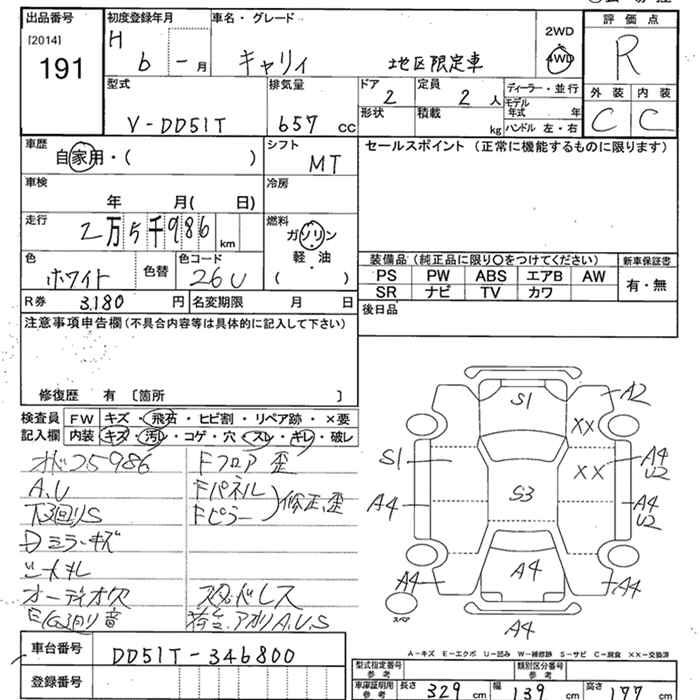 出品番号 初度登録年月 車名・グレード 評価点
[2014] H 2WD R
191 6 - 月 キャリィ 地区限定車 4WD
外装 内装
型式 排気量 ドア 2 定員 2 人 ディーラー・並行 C C
モデル年式 年
V-DD51T 657 cc 形状 積載 kg ハンドル 左・右
車歴 シフト セールスポイント (正常に機能するものに限ります)
自家用・( ) MT
車検 冷房
年 月( 日)
走行 燃料
2万5千986 km ガソリン
軽・油
色 色替 色コード ・
ホワイト 26U ( )
装備品 (純正品に限り○をつけてください) 新車保証書
PS PW ABS エアB AW 有・無
SR ナビ TV カワ
R券 3,180 円 名変期限 月 日 後日品
注意事項申告欄 (不具合内容等は具体的に記入して下さい)
修復歴 有 〔箇所 〕
検査員 FW キズ・飛石・ヒビ割・リペア跡・×要
記入欄 内装 キズ・汚れ・コゲ・穴・スレ・キレ・破レ
25986 Fフロア歪
A,U Fパネル
下回りS Fピラー 修正、歪
Dミラーキズ
シートキレ
オーディオ欠 スタッドレス
E/G廻り音 荷台、アオリA.U.S
S1 A2
XX
S1 XX A4
U2
A4 S3 A4
U2
A4 A4 A4
スペア
A4
A-キズ E-エクボ U-凹み W-補修跡 S-サビ C-腐食 XX-交換済
車台番号 DD51T-346800
型式指定番号 参考 類別区分番号 参考
登録番号
車庫証明用 参考 長さ 329 cm 幅 139 cm 高さ 177 cm